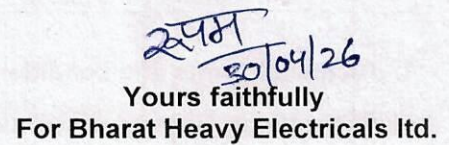 रूपम
30/04/26
Yours faithfully
For Bharat Heavy Electricals ltd.